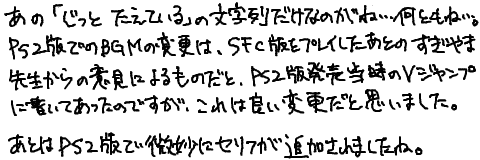 あの「じっと たえている」の文字列だけなのがね…何ともねい。
PS2版でのBGMの変更は、SFC版をプレイしたあとの すぎやま
先生からの意見によるものだと、PS2版発売当時のVジャンプ
に書いてあったのですが、これは良い変更だと思いました。
あとはPS2版で微妙にセリフが追加されましたね。